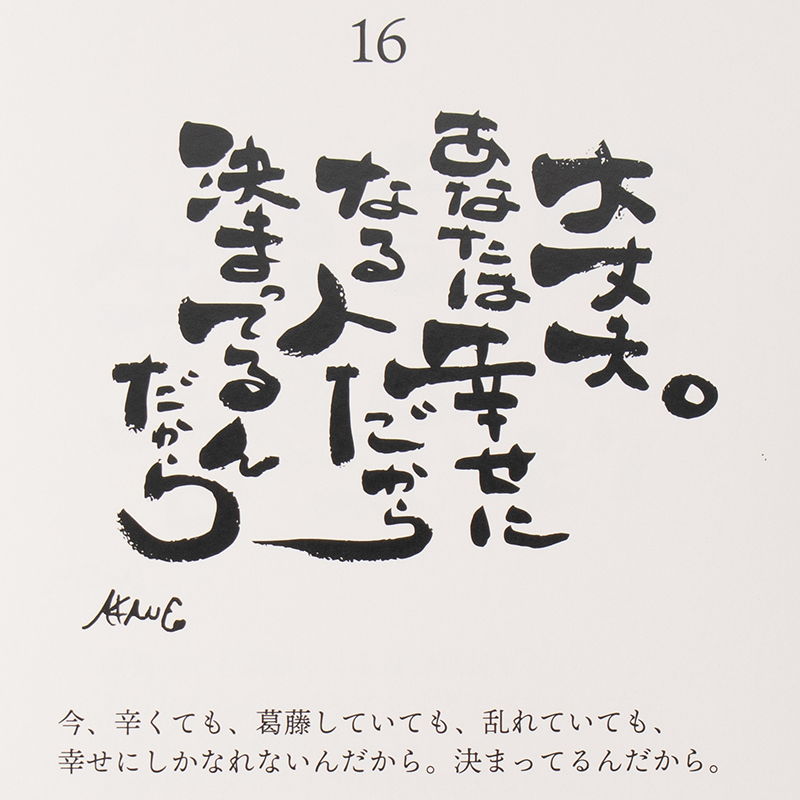 16
大丈夫。
あなたは幸せに
なる人だから
決まってるん
だから
AKANE
今、辛くても、葛藤していても、乱れていても、
幸せにしかなれないんだから。決まってるんだから。